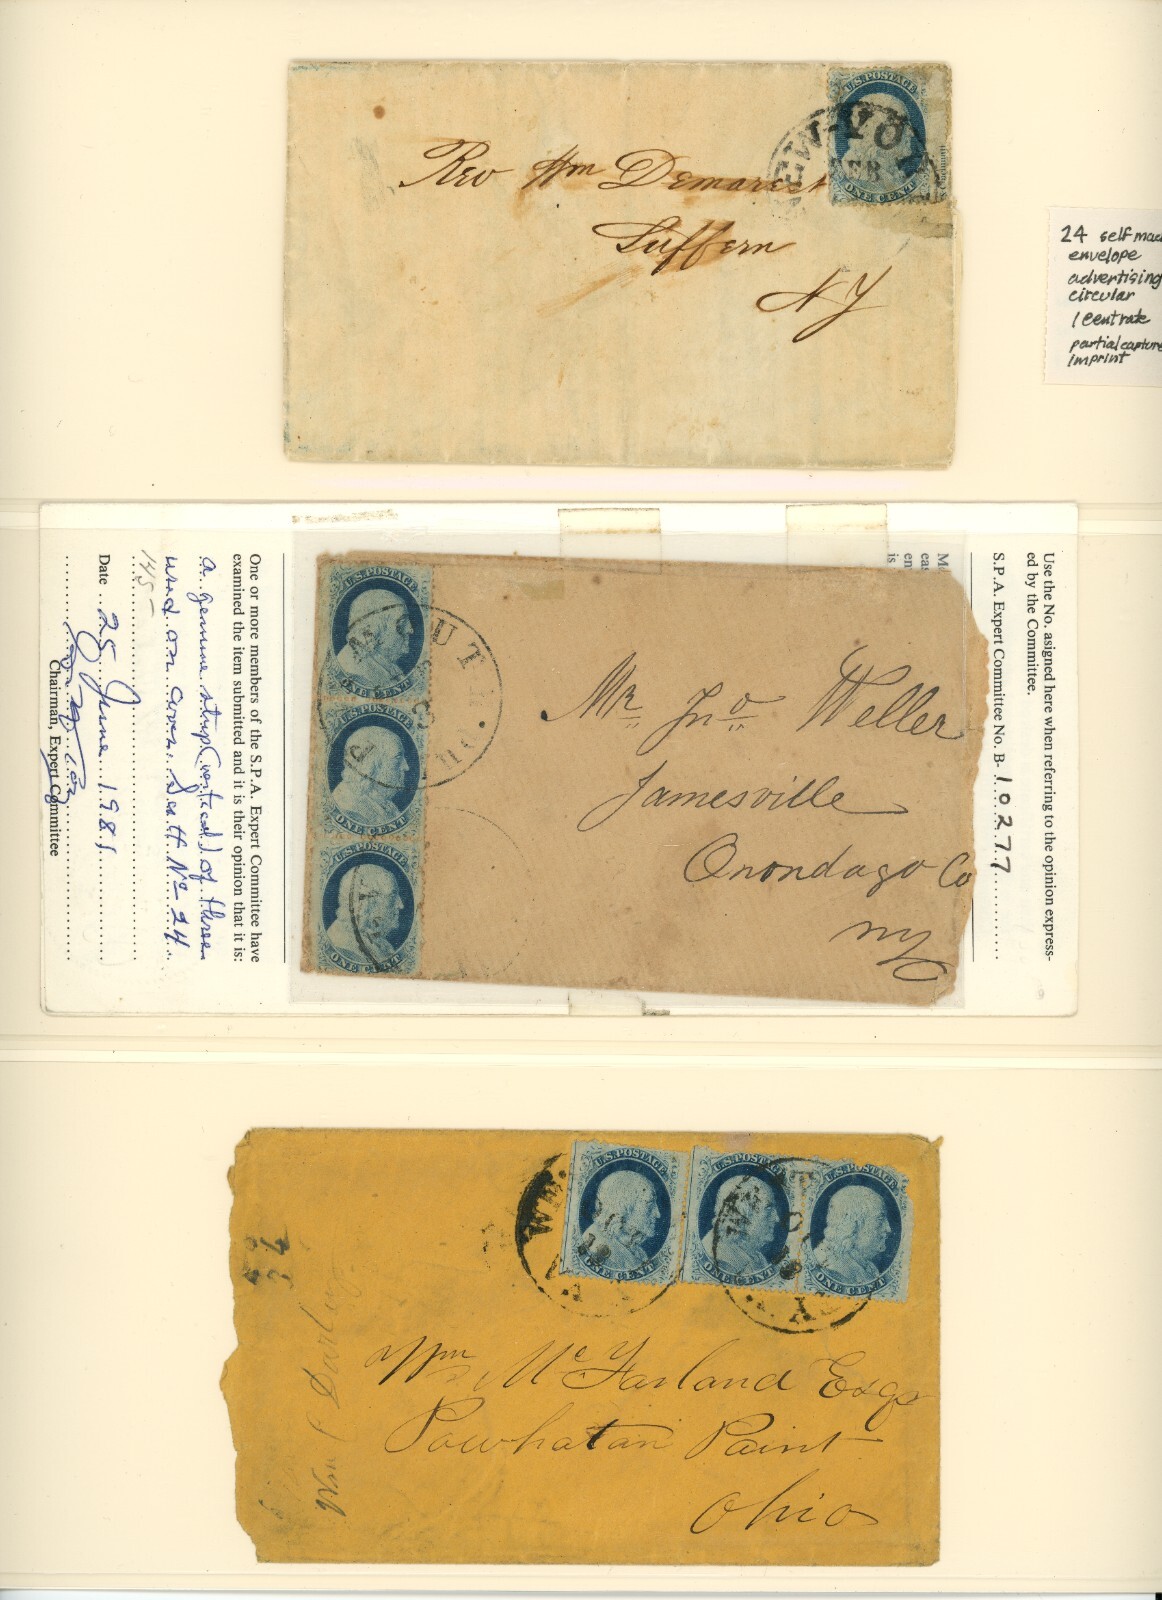 U.S. POSTAGE
ONE CENT
NEW-YO
FEB
Rev Wm Demarest
Suffern
NY
24 self mad
envelope
advertising
circular
1 cent rate
partial capture
imprint
One or more members of the S.P.A. Expert Committee have
examined the item submitted and it is their opinion that it is:
a genuine strip (vertical) of three
used on cover. Scott No 24
145-
Date 25 June 1981
Chairman, Expert Committee
U.S. POSTAGE
ONE CENT
U.S. POSTAGE
ONE CENT
U.S. POSTAGE
ONE CENT
MOUTH
Mr. Jno Weller
Jamesville
Onondago Co
NY
Use the No. asigned here when referring to the opinion express-
ed by the Committee.
S.P.A. Expert Committee No. B- 10277
U.S. POSTAGE
ONE CENT
U.S. POSTAGE
ONE CENT
U.S. POSTAGE
ONE CENT
Wm McFarland Esqr
Powhatan Point
Ohio
Wm Darling